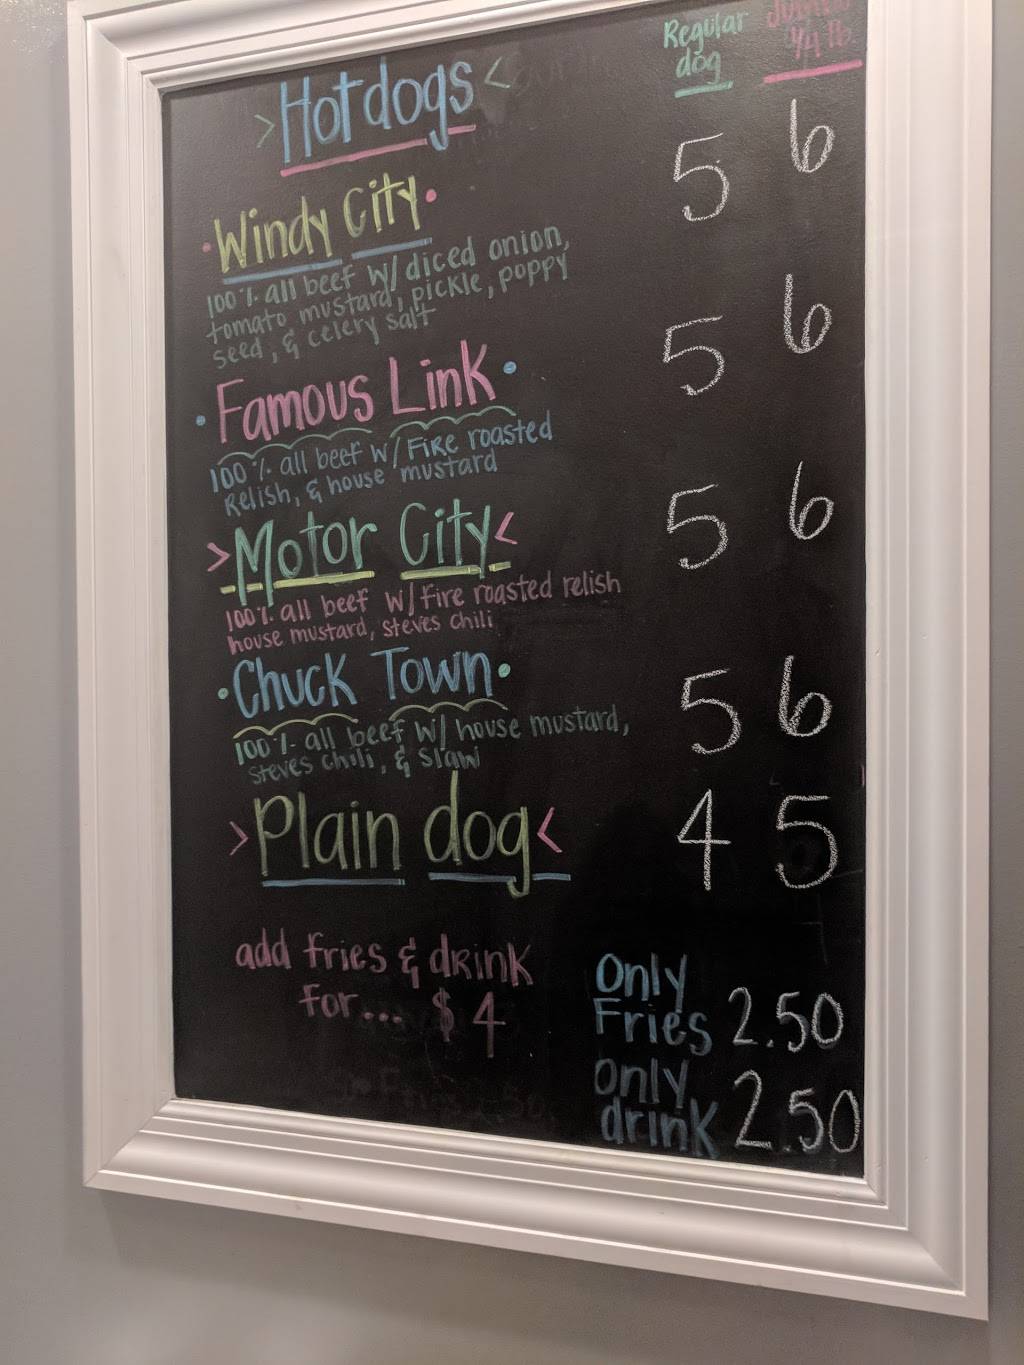 Regular
dog
Jumbo
1/4 lb
>Hotdogs<
5 6
·Windy City·
100% all beef w/ diced onion,
tomato mustard, pickle, poppy
seed, & celery salt
5 6
·Famous Link·
100% all beef w/ Fire roasted
Relish, & house mustard
5 6
>Motor City<
100% all beef w/ fire roasted relish
house mustard, steves chili
5 6
·Chuck Town·
100% all beef w/ house mustard,
steves chili, & slaw
4 5
>Plain dog<
add fries & drink
for... $4
Only
Fries 2.50
Only
drink 2.50